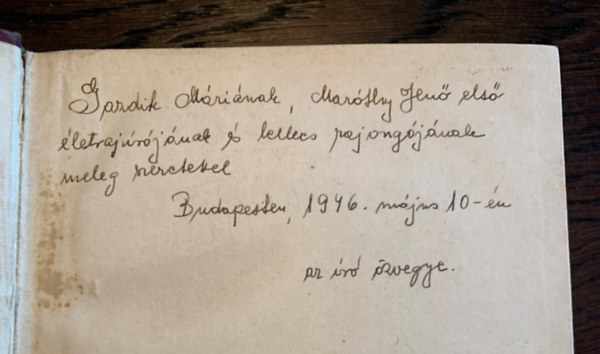 Gardik Máriának, Maróthy Jenő első
életrajzírójának és lelkes rajongójának
meleg szeretettel
Budapesten, 1946. május 10-én
az író özvegye.